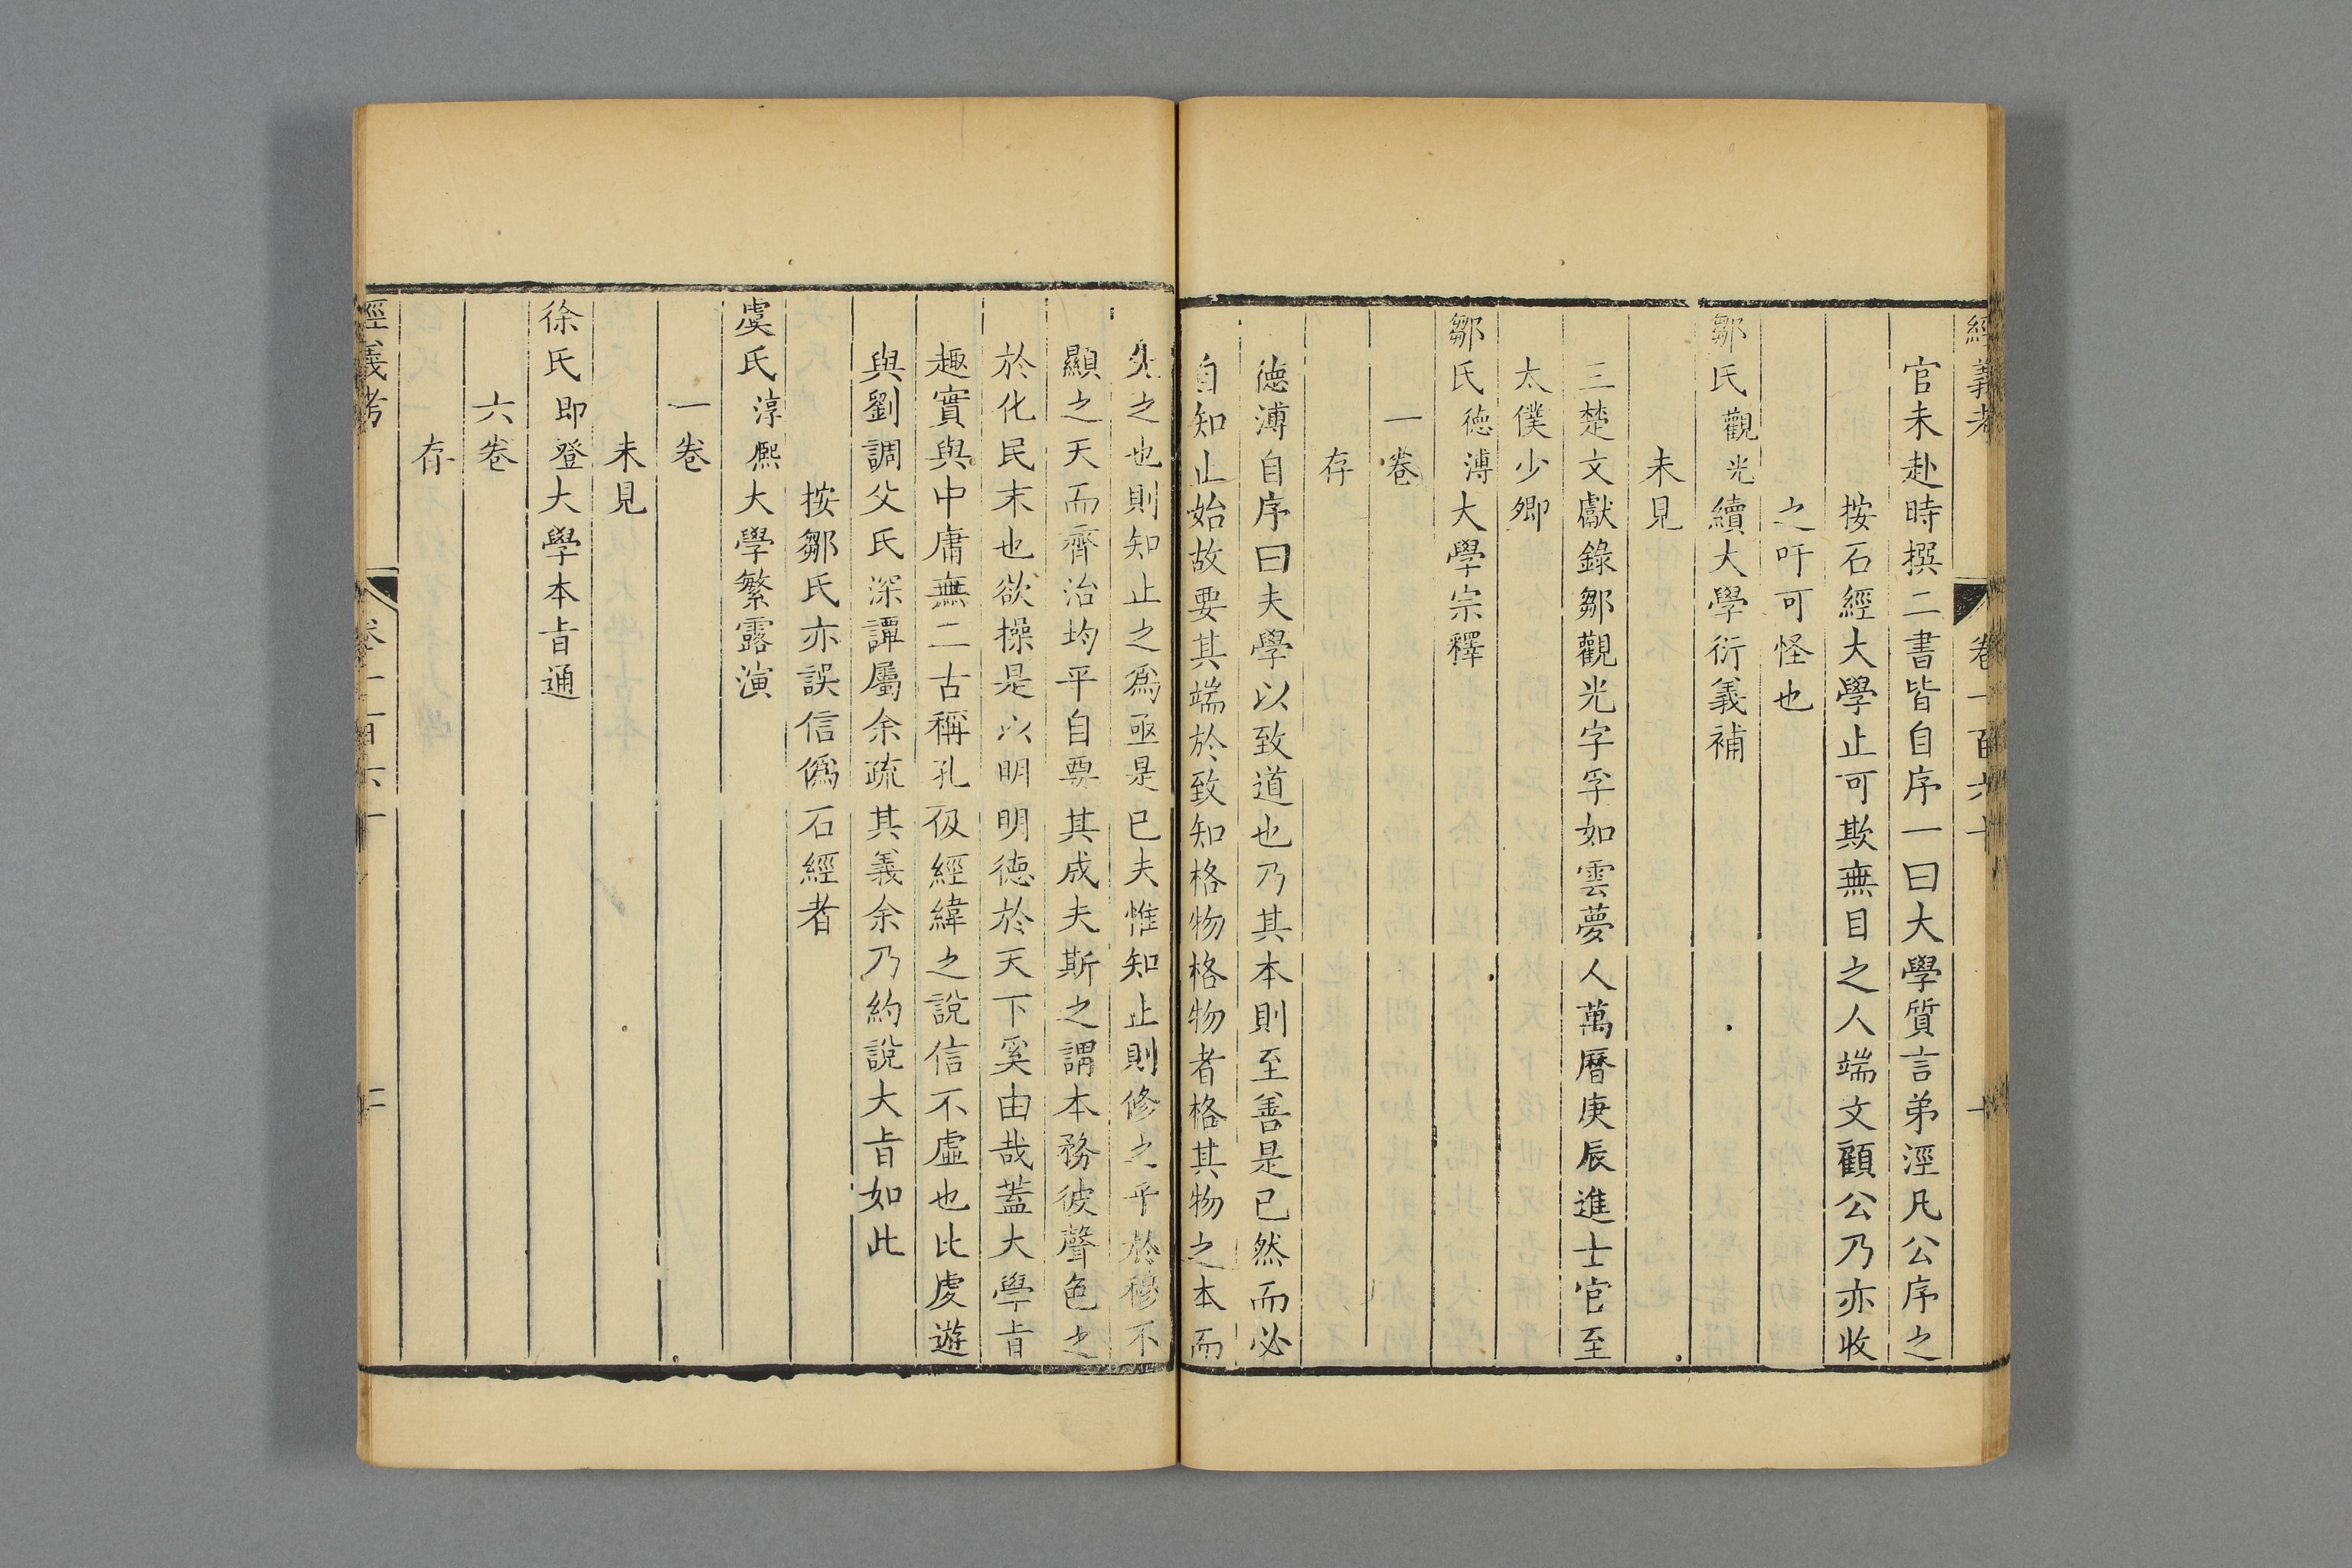 經義考 卷一百六十 十
官未赴時撰二書皆自序一曰大學質言弟涇凡公序之
按石經大學止可欺無目之人端文顧公乃亦收
之吁可怪也
鄒氏觀光續大學衍義補
未見
三楚文獻錄鄒觀光字孚如雲夢人萬曆庚辰進士官至
太僕少卿
鄒氏德溥大學宗釋
一卷
存
德溥自序曰夫學以致道也乃其本則至善是已然而必
自知止始故要其端於致知格物格物者格其物之本而
先之也則知止之爲亟是已夫惟知止則修之乎於穆不
顯之天而齊治均平自要其成夫斯之謂本務彼聲色之
於化民末也欲操是以明明德於天下奚由哉蓋大學旨
趣實與中庸無二古稱孔伋經緯之說信不虛也比虔遊
與劉調父氏深譚屬余疏其義余乃約說大旨如此
按鄒氏亦誤信僞石經者
虞氏淳熈大學繁露演
一卷
未見
徐氏即登大學本旨通
六卷
存
經義考 卷一百六十一